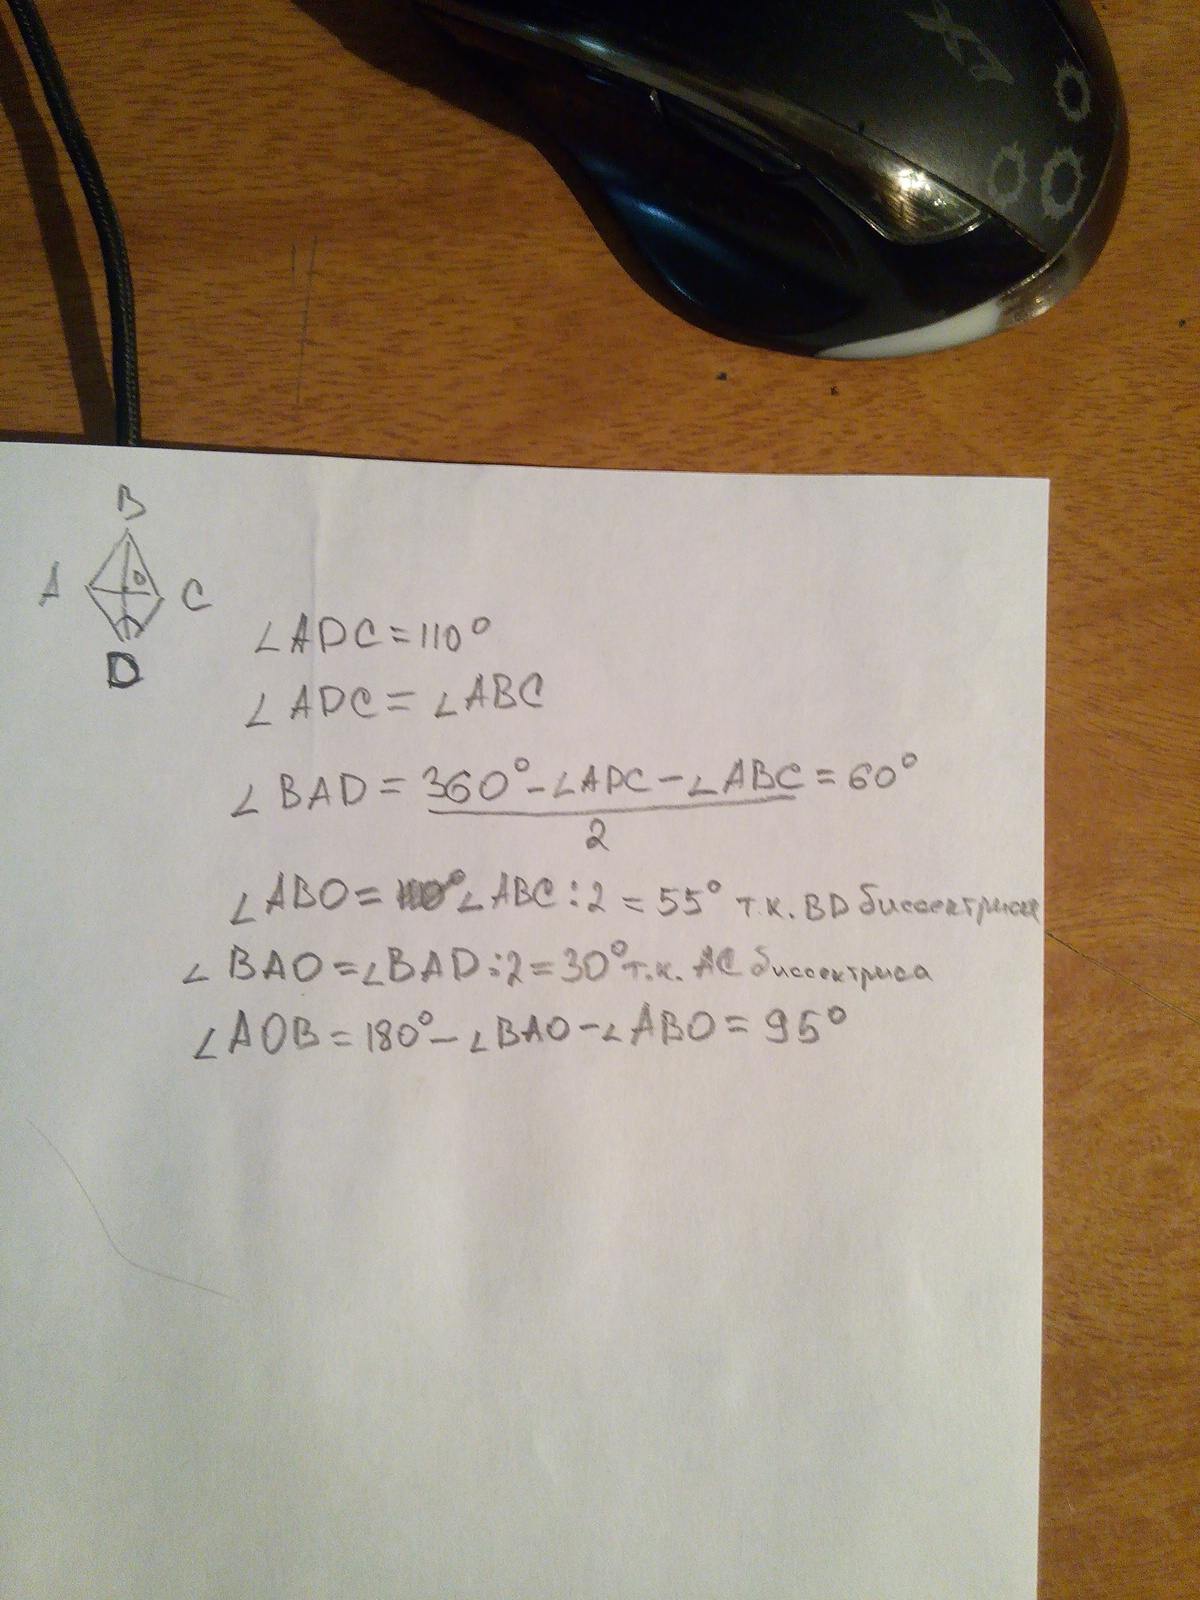 B
A O C
D
∠ADC=110°
∠ADC=∠ABC
∠BAD= 360°-∠ADC-∠ABC =60°
2
∠ABO= ∠ABC:2=55° т.к. BD биссектриса
∠BAO=∠BAD:2=30° т.к. AC биссектриса
∠AOB=180°-∠BAO-∠ABO=95°